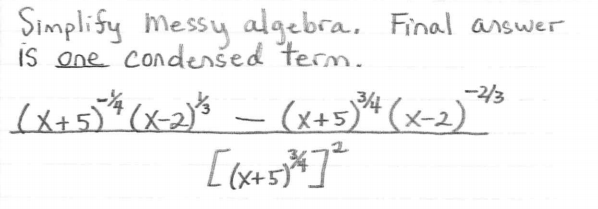 Simplify messy algebra. Final answer
is one condensed term.
(x+5)^{-1/4} (x-2)^{1/3} — (x+5)^{3/4} (x-2)^{-2/3}
[(x+5)^{3/4}]^2